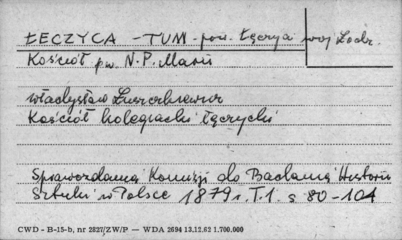 ŁĘCZYCA - TUM pow. Łęczyca woj Łodz.
Kościół pw. N.P. Marii
Władysław Łuszczkiewicz
Kościół kolegiacki łęczycki
Sprawozdania Komisji do Badania Historii
Sztuki w Polsce 1879 r. T.1. s 80-104
CWD - B-15-b, nr 2827/ZW/P — WDA 2694 13.12.62 1.700.000